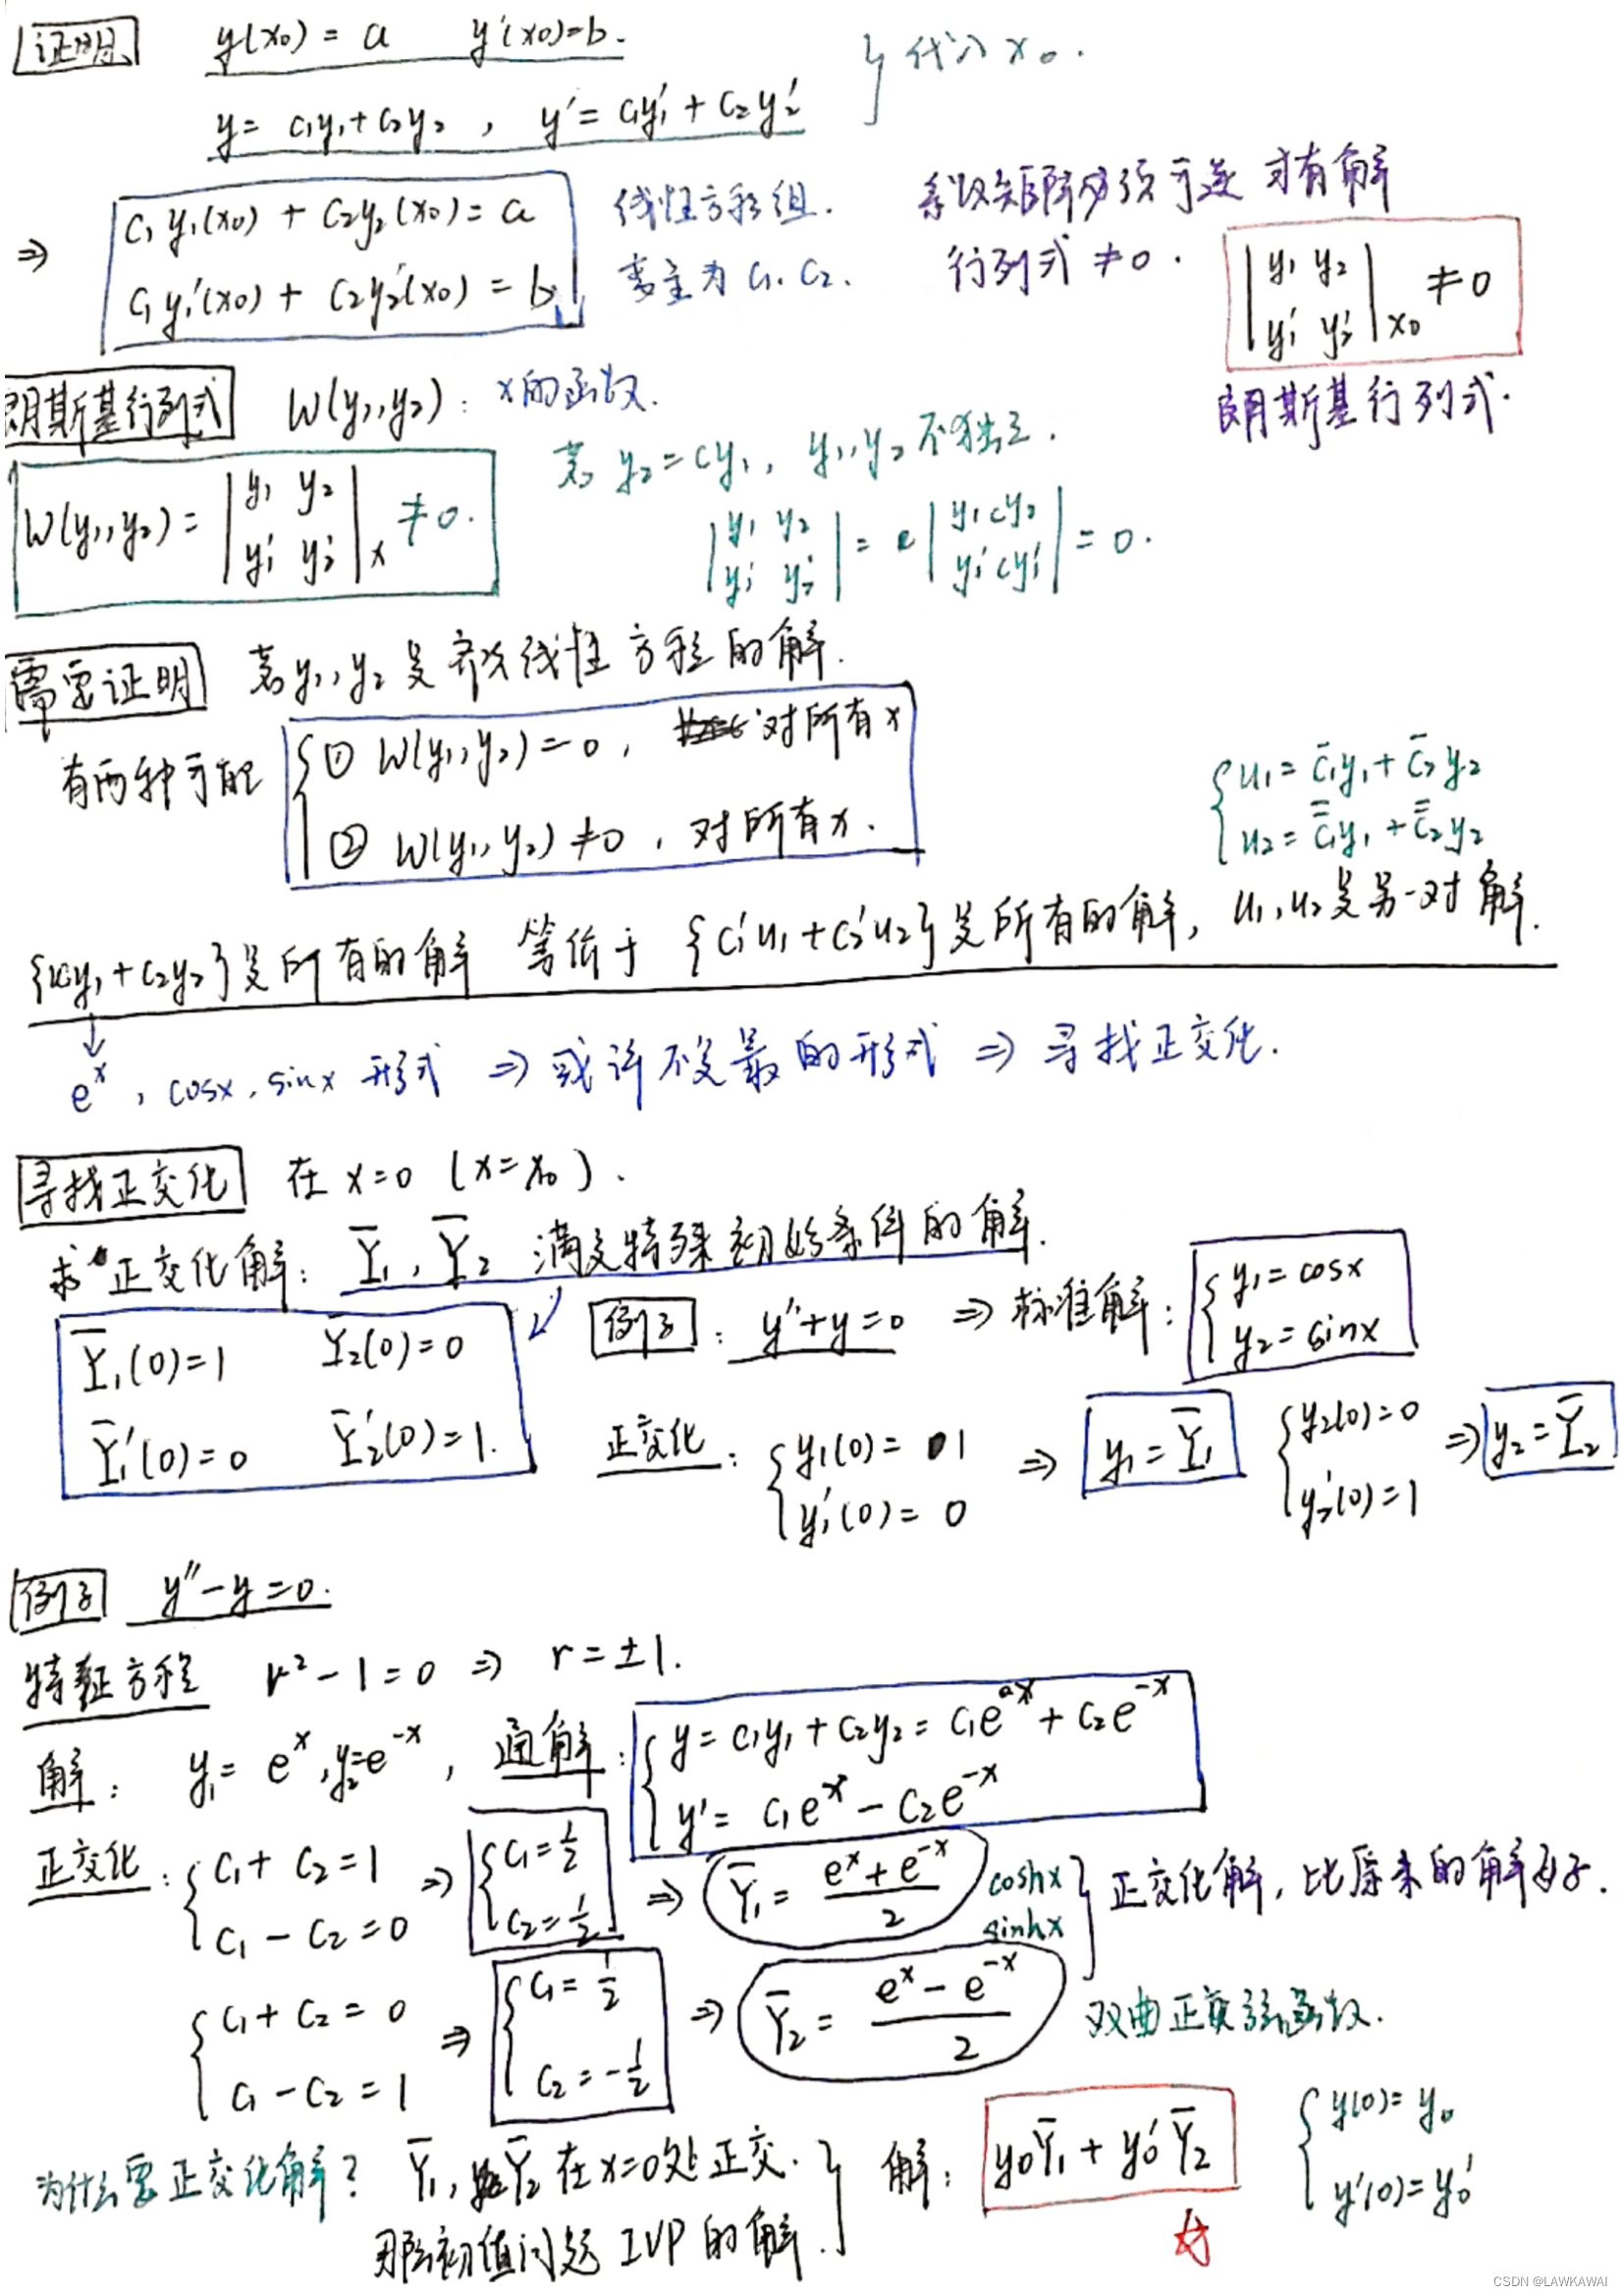 证明 y(x₀) = a y'(x₀)=b. } 代入 x₀.
y = c₁y₁+c₂y₂ , y' = c₁y₁' + c₂y₂'
⇒ c₁y₁(x₀) + c₂y₂(x₀) = a 线性方程组. 系数矩阵必须可逆 才有解
c₁y₁'(x₀) + c₂y₂'(x₀) = b 变量为 c₁. c₂. 行列式 ≠0. |y₁ y₂; y₁' y₂'|x₀ ≠ 0
朗斯基行列式 W(y₁,y₂): x的函数. 朗斯基行列式.
W(y₁,y₂) = |y₁ y₂; y₁' y₂'|x ≠0. 若 y₂=cy₁, y₁,y₂不独立.
|y₁ y₂; y₁' y₂'| = |y₁ cy₂; y₁' cy₁'| = 0.
需要证明 若 y₁,y₂ 是齐次线性方程的解.
有两种可能 { ① W(y₁,y₂)=0, 对所有x
② W(y₁,y₂)≠0, 对所有x.
{ u₁ = c̄₁y₁ + c̄₂y₂
u₂ = c̿₁y₁ + c̿₂y₂
{c₁y₁+c₂y₂}是所有的解 等价于 {c₁'u₁+c₂'u₂}是所有的解, u₁,u₂是另一对解.
↓
eˣ, cosx, sinx 形式 ⇒ 或许不是最的形式 ⇒ 寻找正交化.
寻找正交化 在 x=0 (x=x₀).
求正交化解: Ȳ₁, Ȳ₂ 满足特殊初始条件的解.
Ȳ₁(0)=1 Ȳ₂(0)=0 例子: y''+y=0 ⇒ 标准解: { y₁=cosx
y₂=sinx
Ȳ₁'(0)=0 Ȳ₂'(0)=1. 正交化: { y₁(0)= 1
y₁'(0)= 0 ⇒ y₁=Ȳ₁ { y₂(0)=0
y₂'(0)=1 ⇒ y₂=Ȳ₂
例子 y''-y=0.
特征方程 r²-1=0 ⇒ r=±1.
解: y₁=eˣ, y₂=e⁻ˣ, 通解: { y=c₁y₁+c₂y₂=c₁eˣ+c₂e⁻ˣ
y'=c₁eˣ-c₂e⁻ˣ
正交化: { c₁+c₂=1
c₁-c₂=0 ⇒ { c₁=½
c₂=½ ⇒ Ȳ₁ = (eˣ+e⁻ˣ)/2 coshx
sinhx } 正交化解, 比原来的解好.
{ c₁+c₂=0
c₁-c₂=1 ⇒ { c₁=½
c₂=-½ ⇒ Ȳ₂ = (eˣ-e⁻ˣ)/2 双曲正弦函数.
为什么要正交化解? Ȳ₁, Ȳ₂ 在x=0处正交.
初值问题 IVP 的解. } 解: y₀Ȳ₁+y₀'Ȳ₂ { y(0)=y₀
y'(0)=y₀'
CSDN @LAWKAWAI